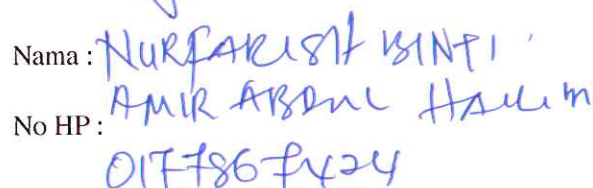 Nama : NURFARISH BINTI
AMIR ABDUL HALIM
No HP :
0177867424